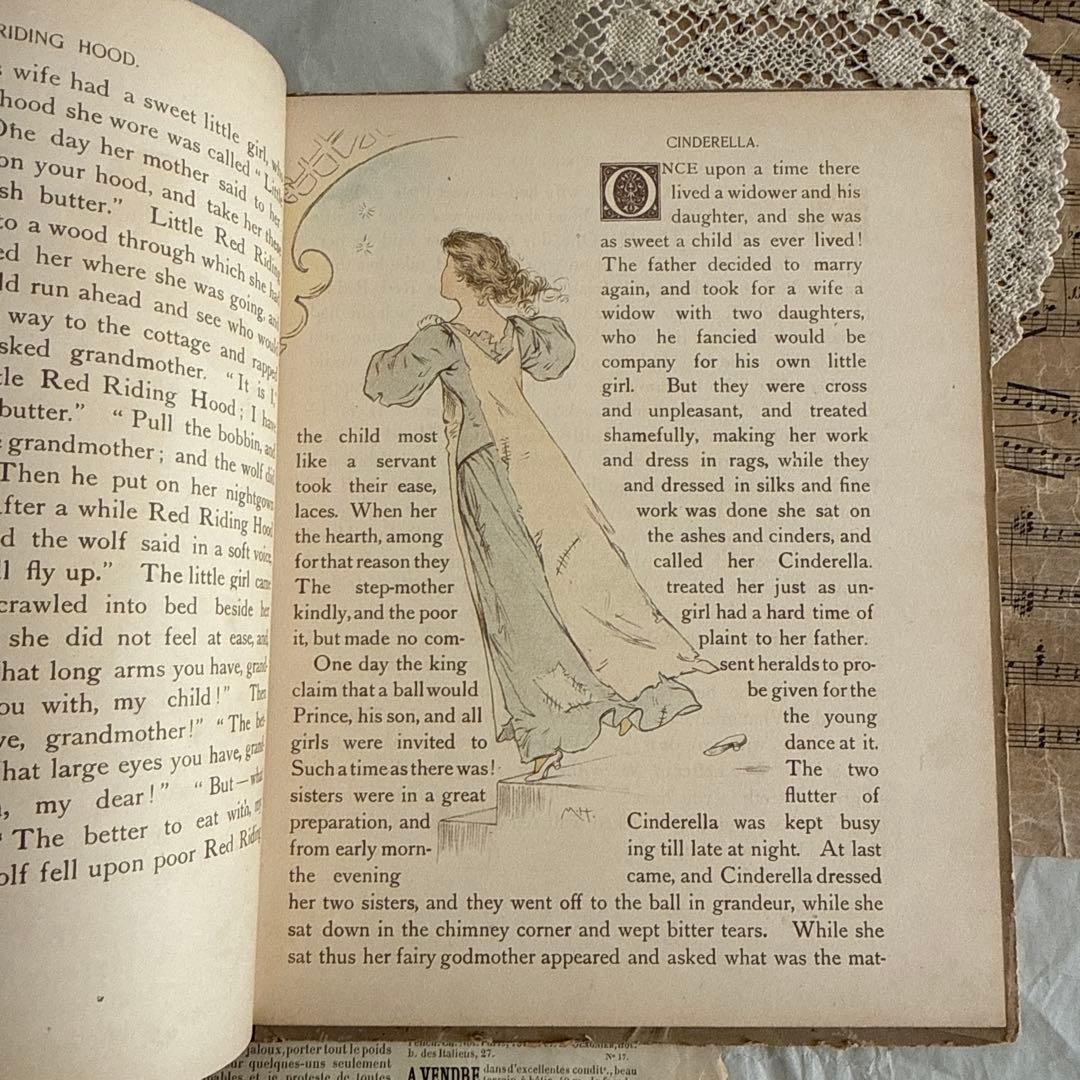 RIDING HOOD.
wife had a sweet little girl,
hood she wore was called "
One day her mother said to her
on your hood, and take her these
sh butter." Little Red Riding
to a wood through which she had
ed her where she was going, and
ld run ahead and see who would
way to the cottage and rapped
sked grandmother. "It is I,
tle Red Riding Hood; I have
butter." "Pull the bobbin, and
grandmother; and the wolf did
Then he put on her nightgown
After a while Red Riding Hood
d the wolf said in a soft voice,
ll fly up." The little girl came
crawled into bed beside her
she did not feel at ease, and,
hat long arms you have, grand-
ou with, my child!" Then
ve, grandmother!" "The bet-
hat large eyes you have, grand-
, my dear!" "But—what
"The better to eat with, my
olf fell upon poor Red Riding
CINDERELLA.
ONCE upon a time there
lived a widower and his
daughter, and she was
as sweet a child as ever lived!
The father decided to marry
again, and took for a wife a
widow with two daughters,
who he fancied would be
company for his own little
girl. But they were cross
and unpleasant, and treated
the child most shamefully, making her work
like a servant and dress in rags, while they
took their ease, and dressed in silks and fine
laces. When her work was done she sat on
the hearth, among the ashes and cinders, and
for that reason they called her Cinderella.
The step-mother treated her just as un-
kindly, and the poor girl had a hard time of
it, but made no com- plaint to her father.
One day the king sent heralds to pro-
claim that a ball would be given for the
Prince, his son, and all the young
girls were invited to dance at it.
Such a time as there was! The two
sisters were in a great flutter of
preparation, and Cinderella was kept busy
from early morn- ing till late at night. At last
the evening came, and Cinderella dressed
her two sisters, and they went off to the ball in grandeur, while she
sat down in the chimney corner and wept bitter tears. While she
sat thus her fairy godmother appeared and asked what was the mat-
MH.
jaloux, porter tout le poids
ur quelques-uns seulement
et je proteste de toutes
b. des Italiens, 27.
Nº 17.
A VENDRE dans d'excellentes condit., beau